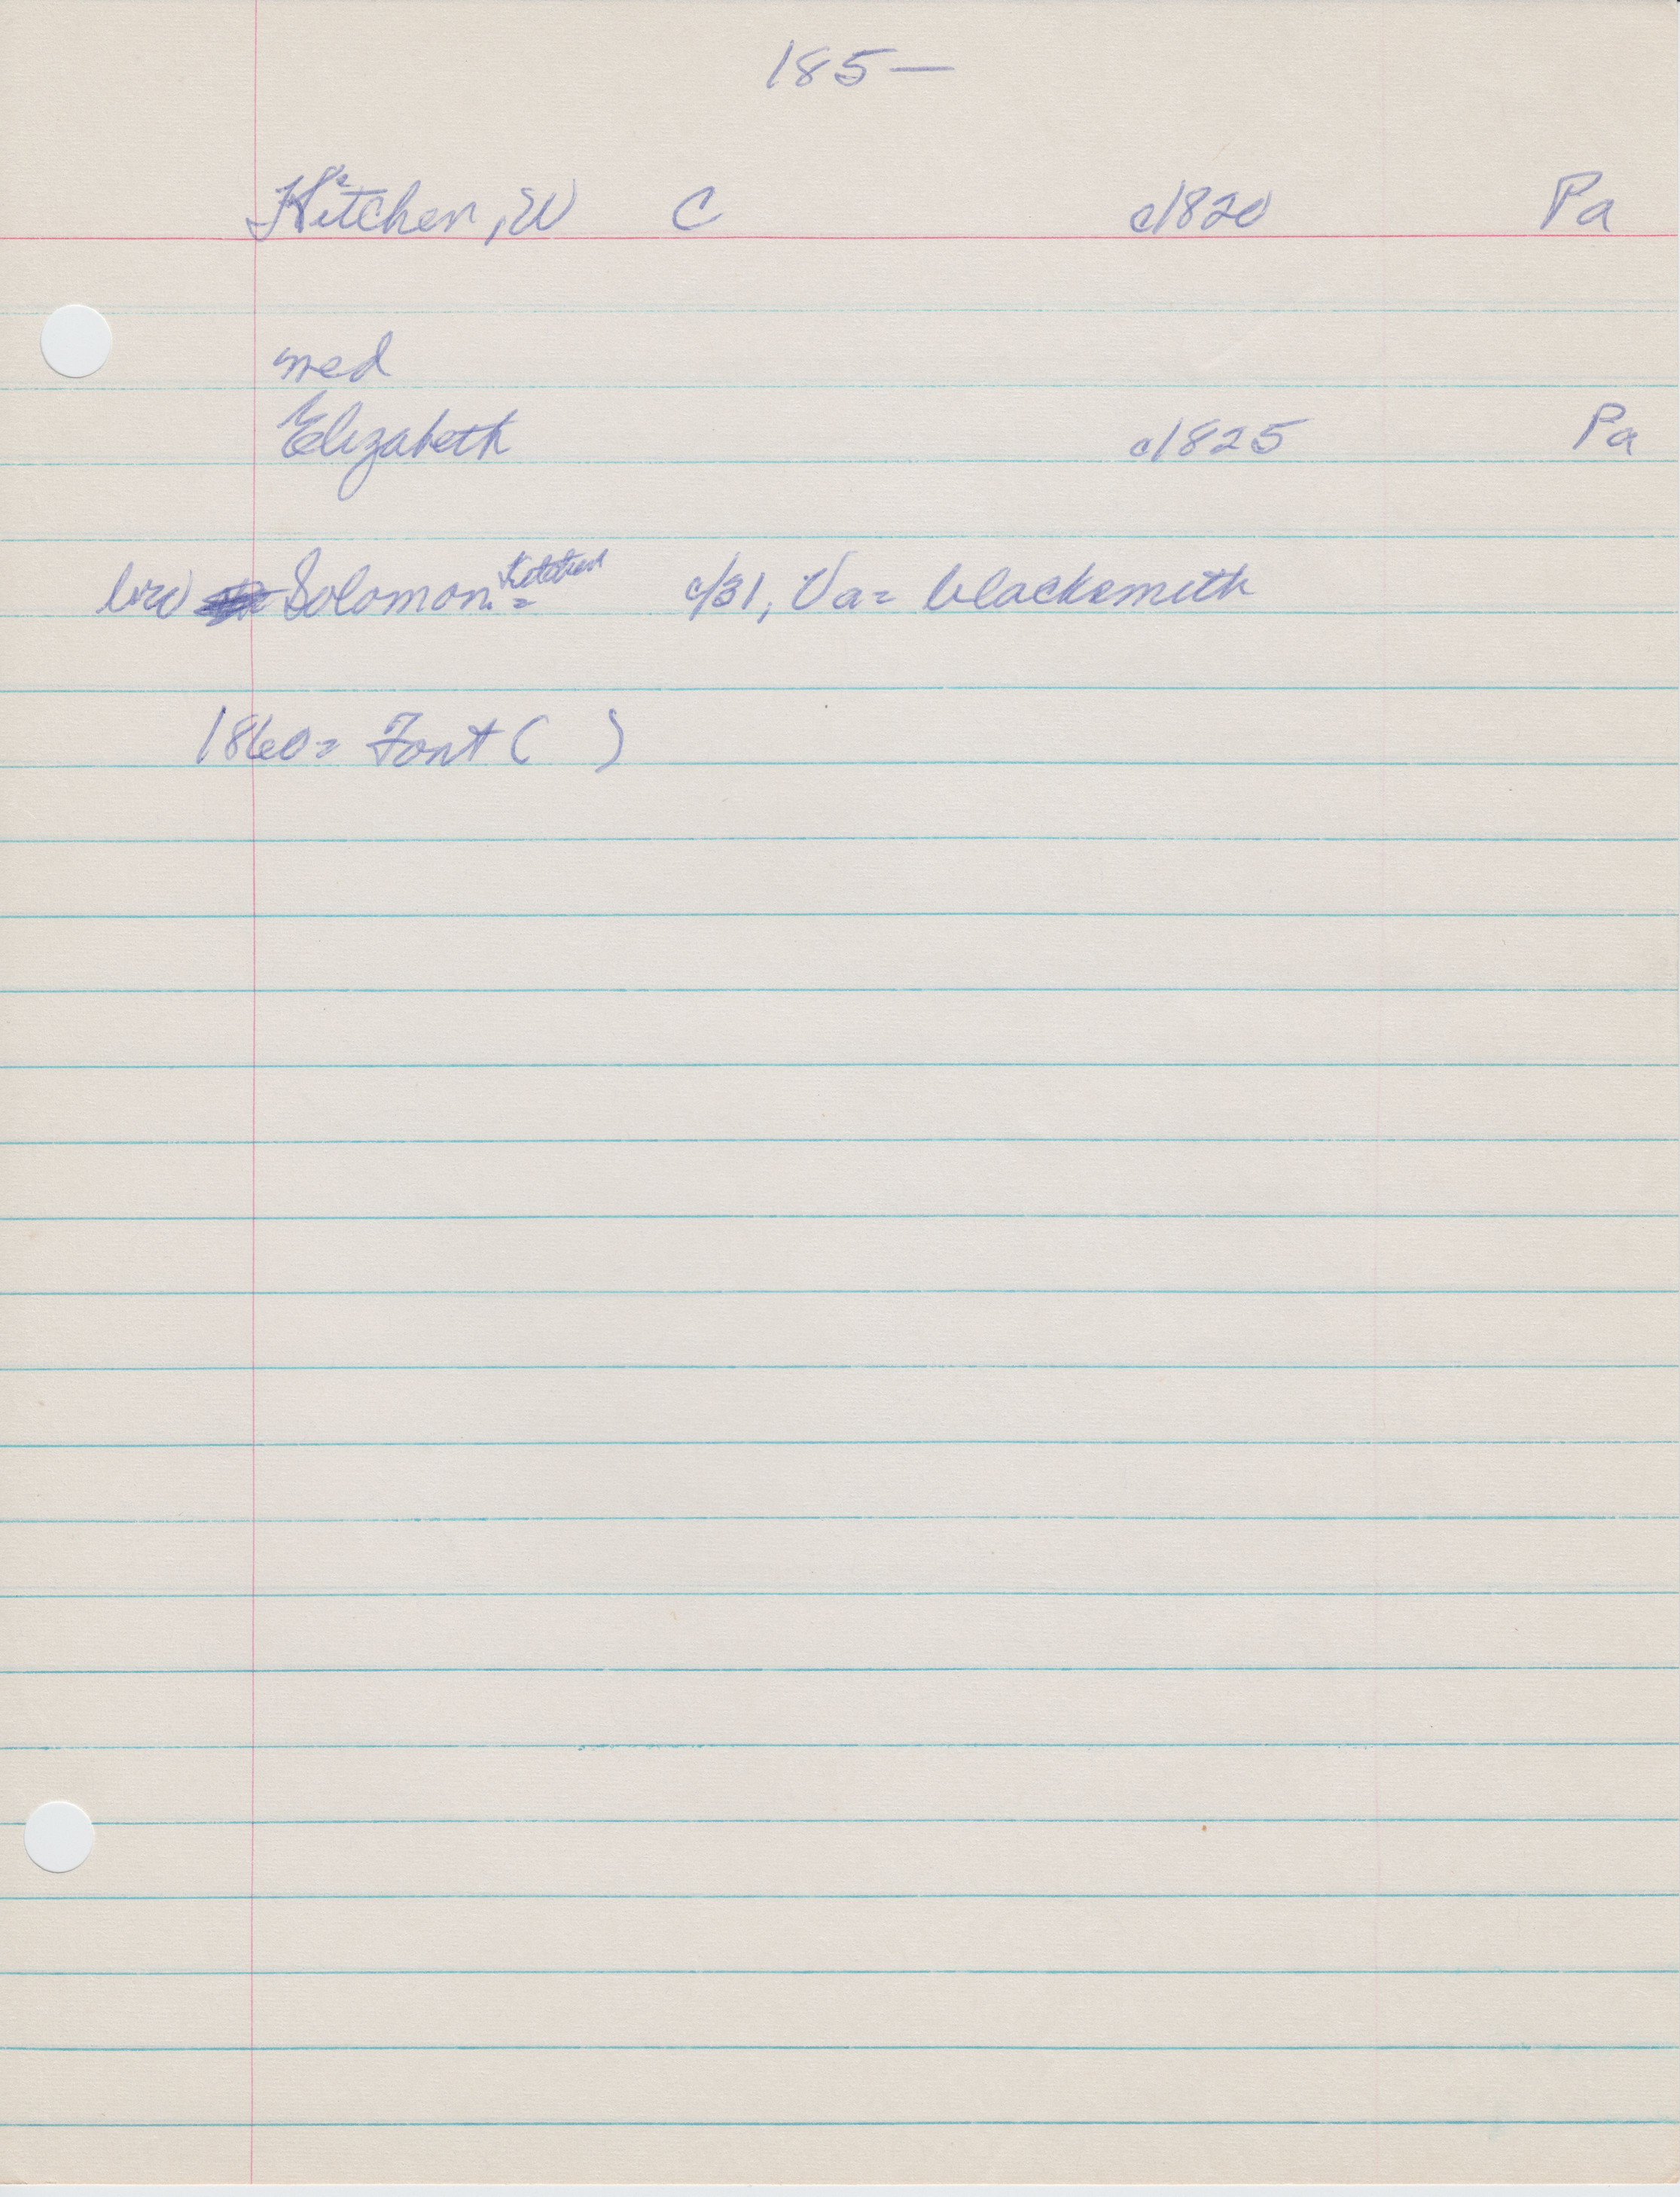 185—
Kitchen, W C c1820 Pa
med
Elizabeth c1825 Pa
bro Solomon Kitchen = c/31, Va= blacksmith
1860= Font ( )